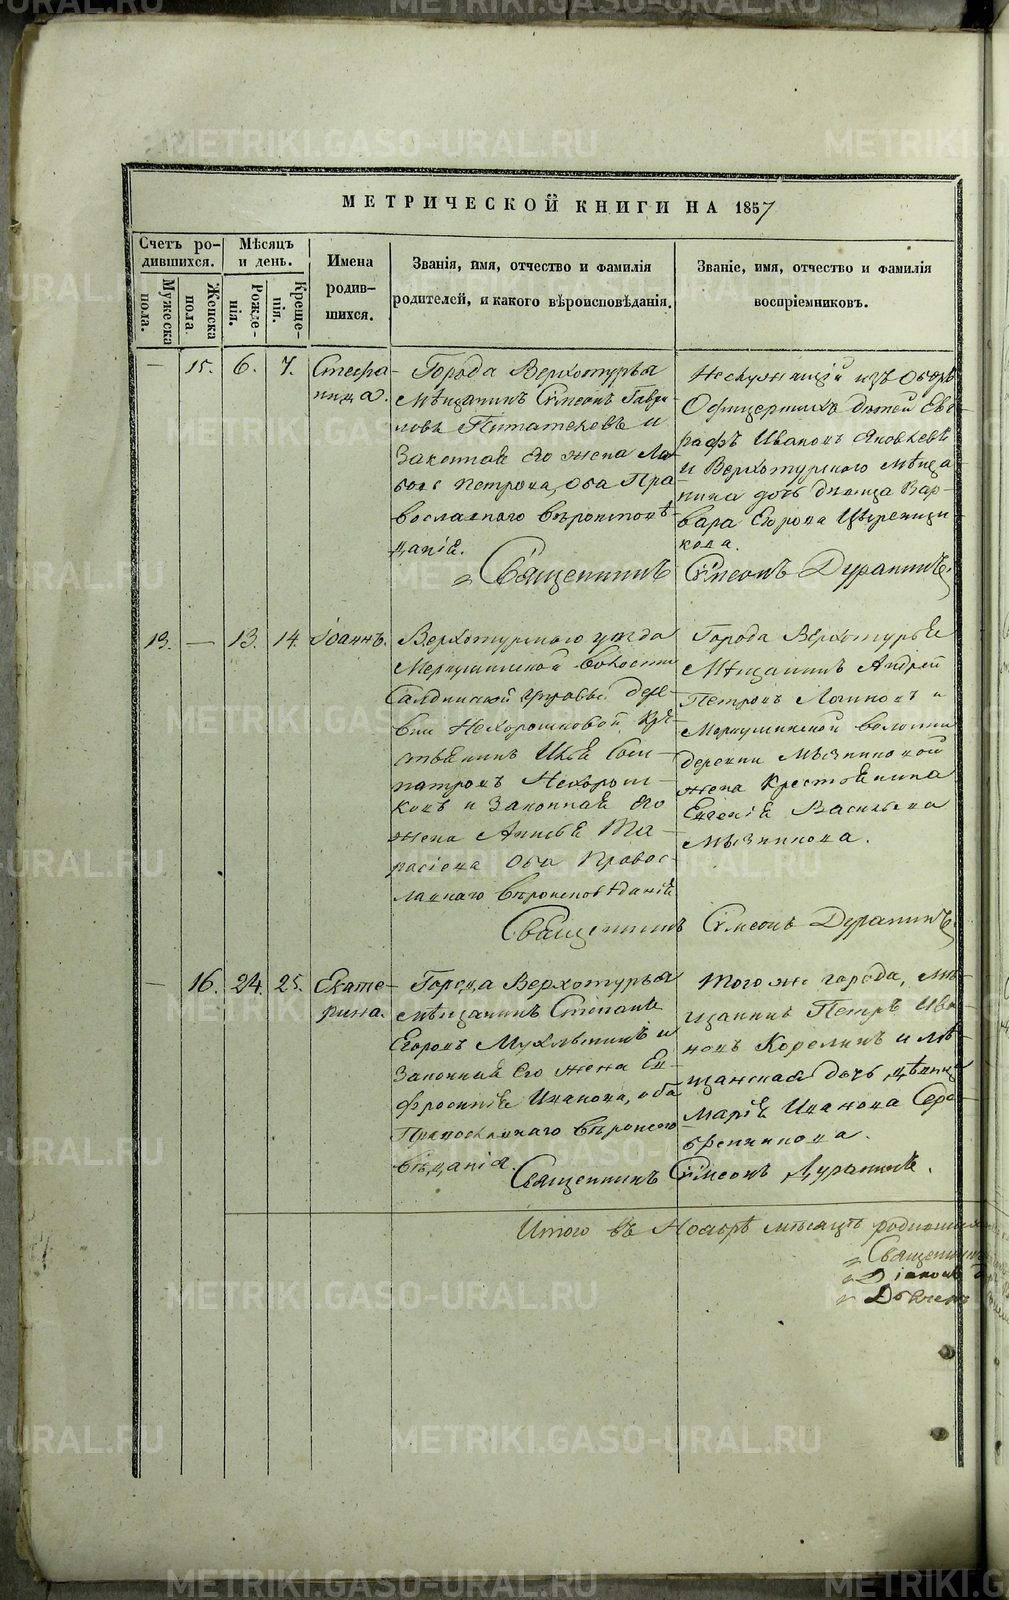 МЕТРИЧЕСКОЙ КНИГИ НА 1857
Счетъ ро-
дившихся.
Мужеска
пола.
Женска
пола.
Мѣсяцъ
и день.
Рожде-
нія.
Креще-
нія.
Имена
родив-
шихся.
Званія, имя, отчество и фамилія
родителей, и какого вѣроисповѣданія.
Званіе, имя, отчество и фамилія
воспріемниковъ.
— 15. 6. 7.
Стефа-
нида.
Города Верхотурья
мѣщанинъ Сѵмеонъ Гаври-
ловъ и
Законная его жена Лю-
бовь Петрова, оба Пра-
вославнаго вѣроисповѣ-
данія.
Неслужащій изъ Оберъ
Офицерскихъ дѣтей Евг-
рафъ Ивановъ Яковлевъ
и Верхотурскаго мѣща-
нина дочь дѣвица Вар-
вара Егорова
кова.
Священникъ Сѵмеонъ Дуранинъ.
13. — 13. 14.
Іоаннъ.
Верхотурскаго уѣзда
Меркушинской волости
Салдинской дере-
вни Нехорошковой кре-
стьянинъ Илья Соси-
патровъ Нехорош-
ковъ и Законная его
жена Анисья Та-
расіева Оба Правос-
лавнаго вѣроисповѣданія
Города Верхотурья
Мѣщанинъ Андрей
Петровъ и
Меркушинской волости
деревни Мызниковой
жена Крестьянина
Евгенія Васильева
Мызникова.
Священникъ Сѵмеонъ Дуранинъ.
— 16. 24. 25.
Екате-
рина.
Города Верхотурья
мѣщанинъ Стефанъ
Егоровъ Мухлынинъ и
Законная Его жена Ев-
фросинія Иванова, оба
Православнаго вѣроиспо-
вѣданія.
Того же города, мѣ-
щанинъ Петръ Ива-
новъ Корелинъ и мѣ-
щанская дочь, дѣвица
Марія Иванова Сере-
бренникова.
Священникъ Сѵмеонъ Дуранинъ.
Итого въ Ноябрѣ мѣсяцѣ родившихся
Священникъ
Діаконъ
Дьячекъ
METRIKI.GASO-URAL.RU